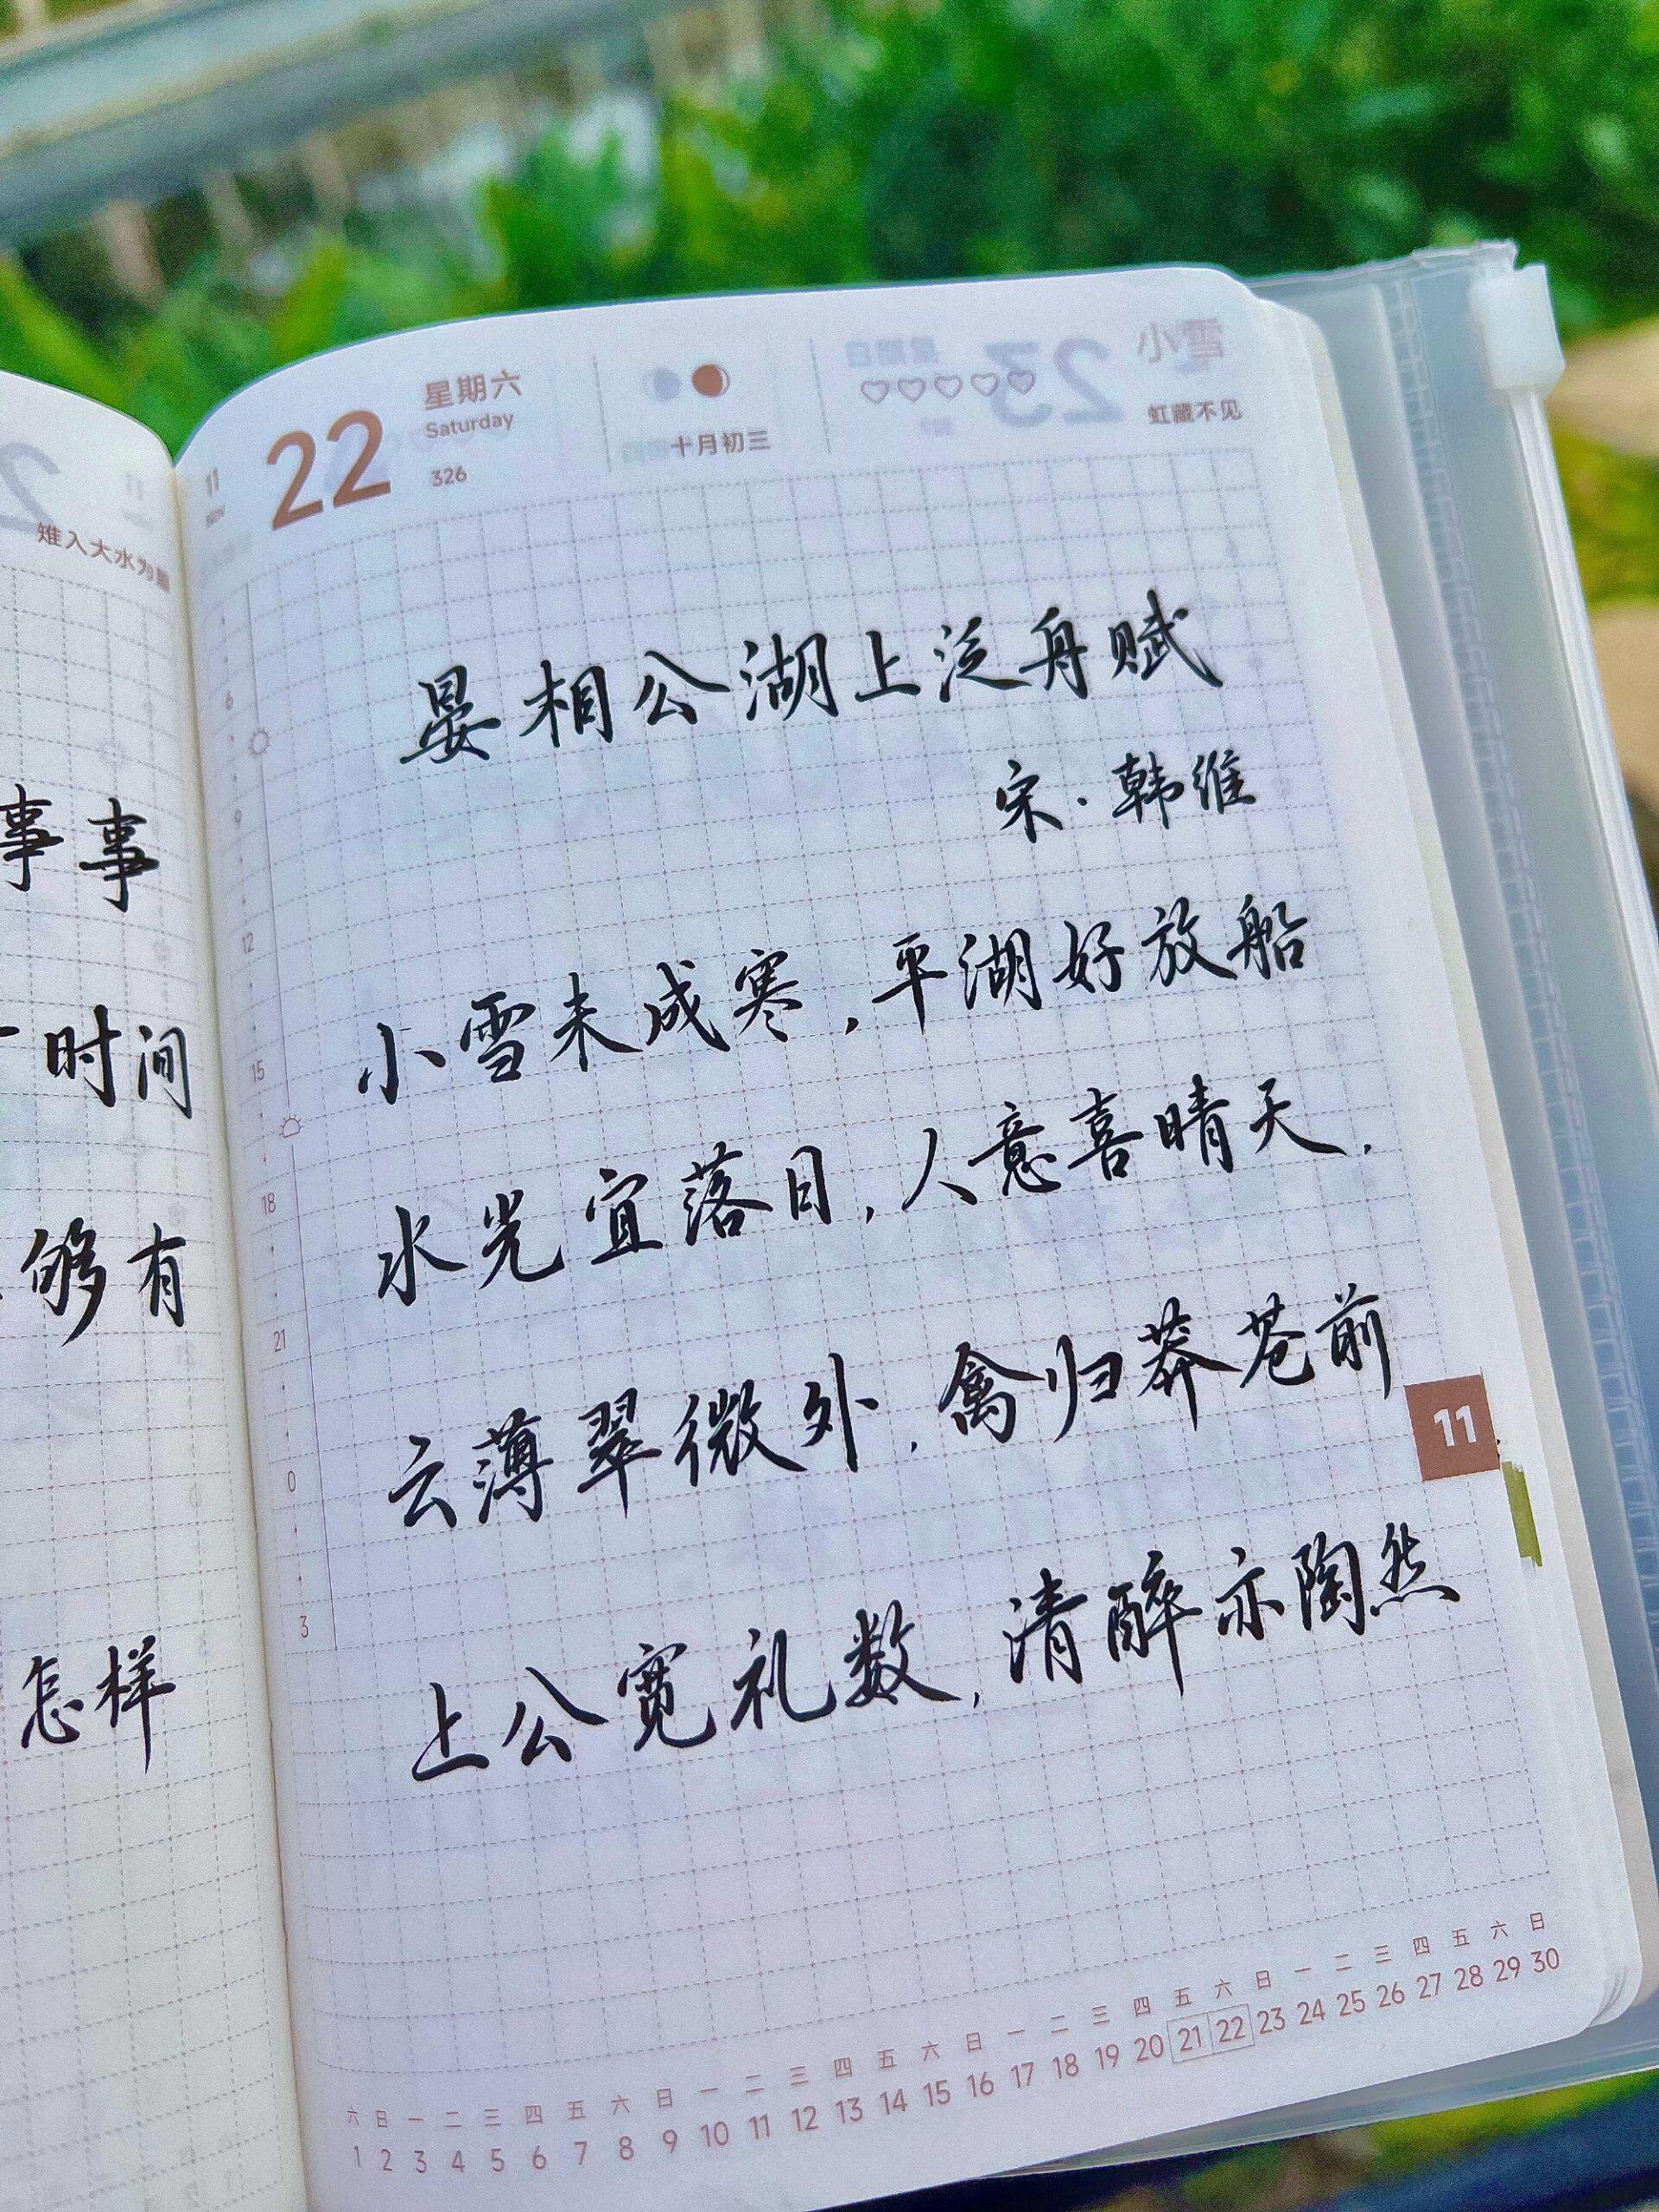 雉入大水为
事事
时间
够有
怎样
11
NOV
22
星期六
Saturday
326
十月初三
小雪
虹藏不见
晏相公湖上泛舟赋
宋·韩维
小雪未成寒,平湖好放船
水光宜落日,人意喜晴天.
云薄翠微外,禽归莽苍前
上公宽礼数,清醉亦陶然
6
9
12
15
18
21
0
3
11
六 日 一 二 三 四 五 六 日 一 二 三 四 五 六 日 一 二 三 四 五 六 日 一 二 三 四 五 六 日
1 2 3 4 5 6 7 8 9 10 11 12 13 14 15 16 17 18 19 20 21 22 23 24 25 26 27 28 29 30